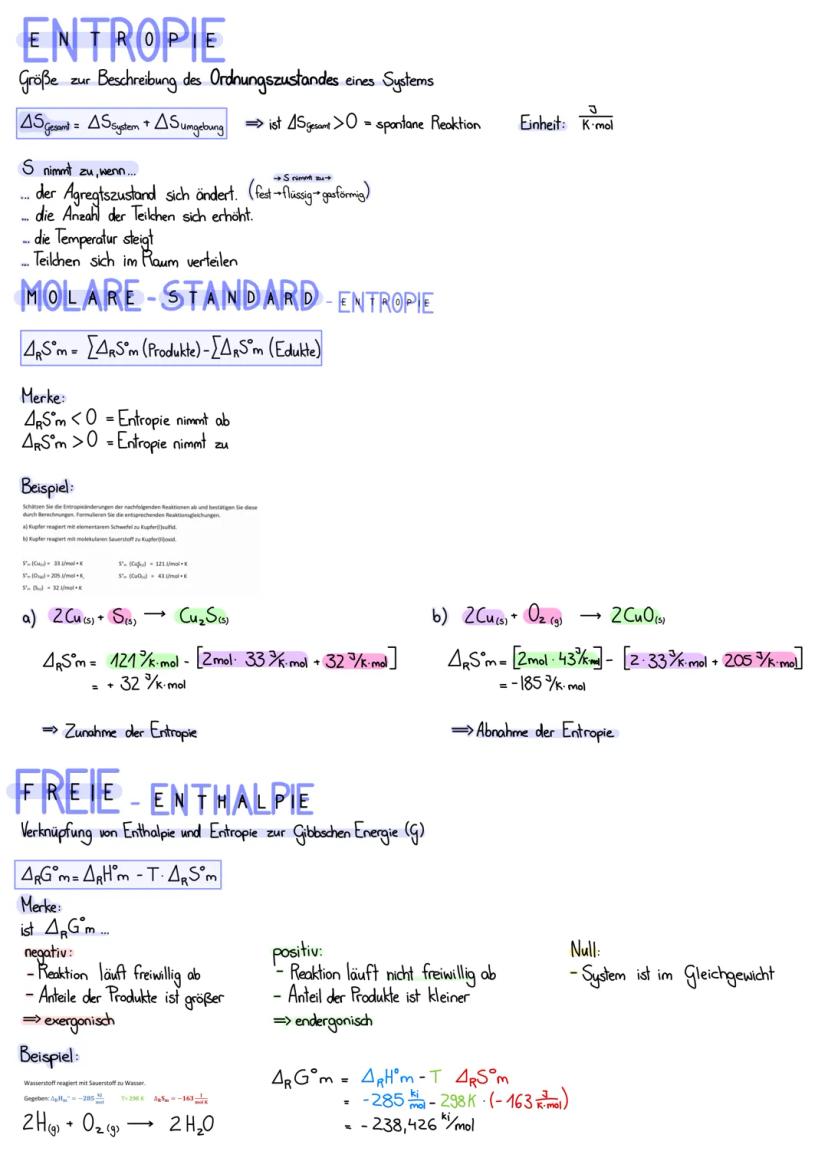 ENTROPIE
Größe zur Beschreibung des Ordnungszustandes eines Systems
ΔSGesamt = ΔSSystem + ΔSUmgebung ⇒ ist ΔSGesamt > 0 = spontane Reaktion Einheit: J/K·mol
S nimmt zu, wenn...
→ S nimmt zu →
... der Agregtszustand sich ändert. (fest → flüssig → gasförmig)
... die Anzahl der Teilchen sich erhöht.
... die Temperatur steigt
... Teilchen sich im Raum verteilen
MOLARE-STANDARD-ENTROPIE
ΔRS°m = ∑ΔRS°m (Produkte) - ∑ΔRS°m (Edukte)
Merke:
ΔRS°m < 0 = Entropie nimmt ab
ΔRS°m > 0 = Entropie nimmt zu
Beispiel:
Schätzen Sie die Entropieänderungen der nachfolgenden Reaktionen ab und bestätigen Sie diese
durch Berechnungen. Formulieren Sie die entsprechenden Reaktionsgleichungen.
a) Kupfer reagiert mit elementarem Schwefel zu Kupfer(I)sulfid.
b) Kupfer reagiert mit molekularem Sauerstoff zu Kupfer(II)oxid.
S°m (Cu(s)) = 33 J/mol • K S°m (Cu2S(s)) = 121 J/mol • K
S°m (O2(g)) = 205 J/mol • K, S°m (CuO(s)) = 43 J/mol • K
S°m (S(s)) = 32 J/mol • K
a) 2Cu(s) + S(s) → Cu2S(s) b) 2Cu(s) + O2(g) → 2CuO(s)
ΔRS°m = 121 J/K·mol - [2mol · 33 J/K·mol + 32 J/K·mol] ΔRS°m = [2mol · 43 J/K·mol] - [2·33 J/K·mol + 205 J/K·mol]
= + 32 J/K·mol = -185 J/K·mol
⇒ Zunahme der Entropie ⇒ Abnahme der Entropie
FREIE-ENTHALPIE
Verknüpfung von Enthalpie und Entropie zur Gibbschen Energie (G)
ΔRG°m = ΔRH°m - T · ΔRS°m
Merke:
ist ΔRG°m ...
negativ: positiv: Null:
- Reaktion läuft freiwillig ab - Reaktion läuft nicht freiwillig ab - System ist im Gleichgewicht
- Anteile der Produkte ist größer - Anteil der Produkte ist kleiner
⇒ exergonisch ⇒ endergonisch
Beispiel:
Wasserstoff reagiert mit Sauerstoff zu Wasser.
Gegeben: ΔRHm° = −285 kJ/mol T= 298 K ΔRSm = −163 J/mol·K
2H(g) + O2(g) → 2H2O
ΔRG°m = ΔRH°m - T ΔRS°m
= -285 kJ/mol - 298K · (-163 J/K·mol)
= - 238,426 kJ/mol